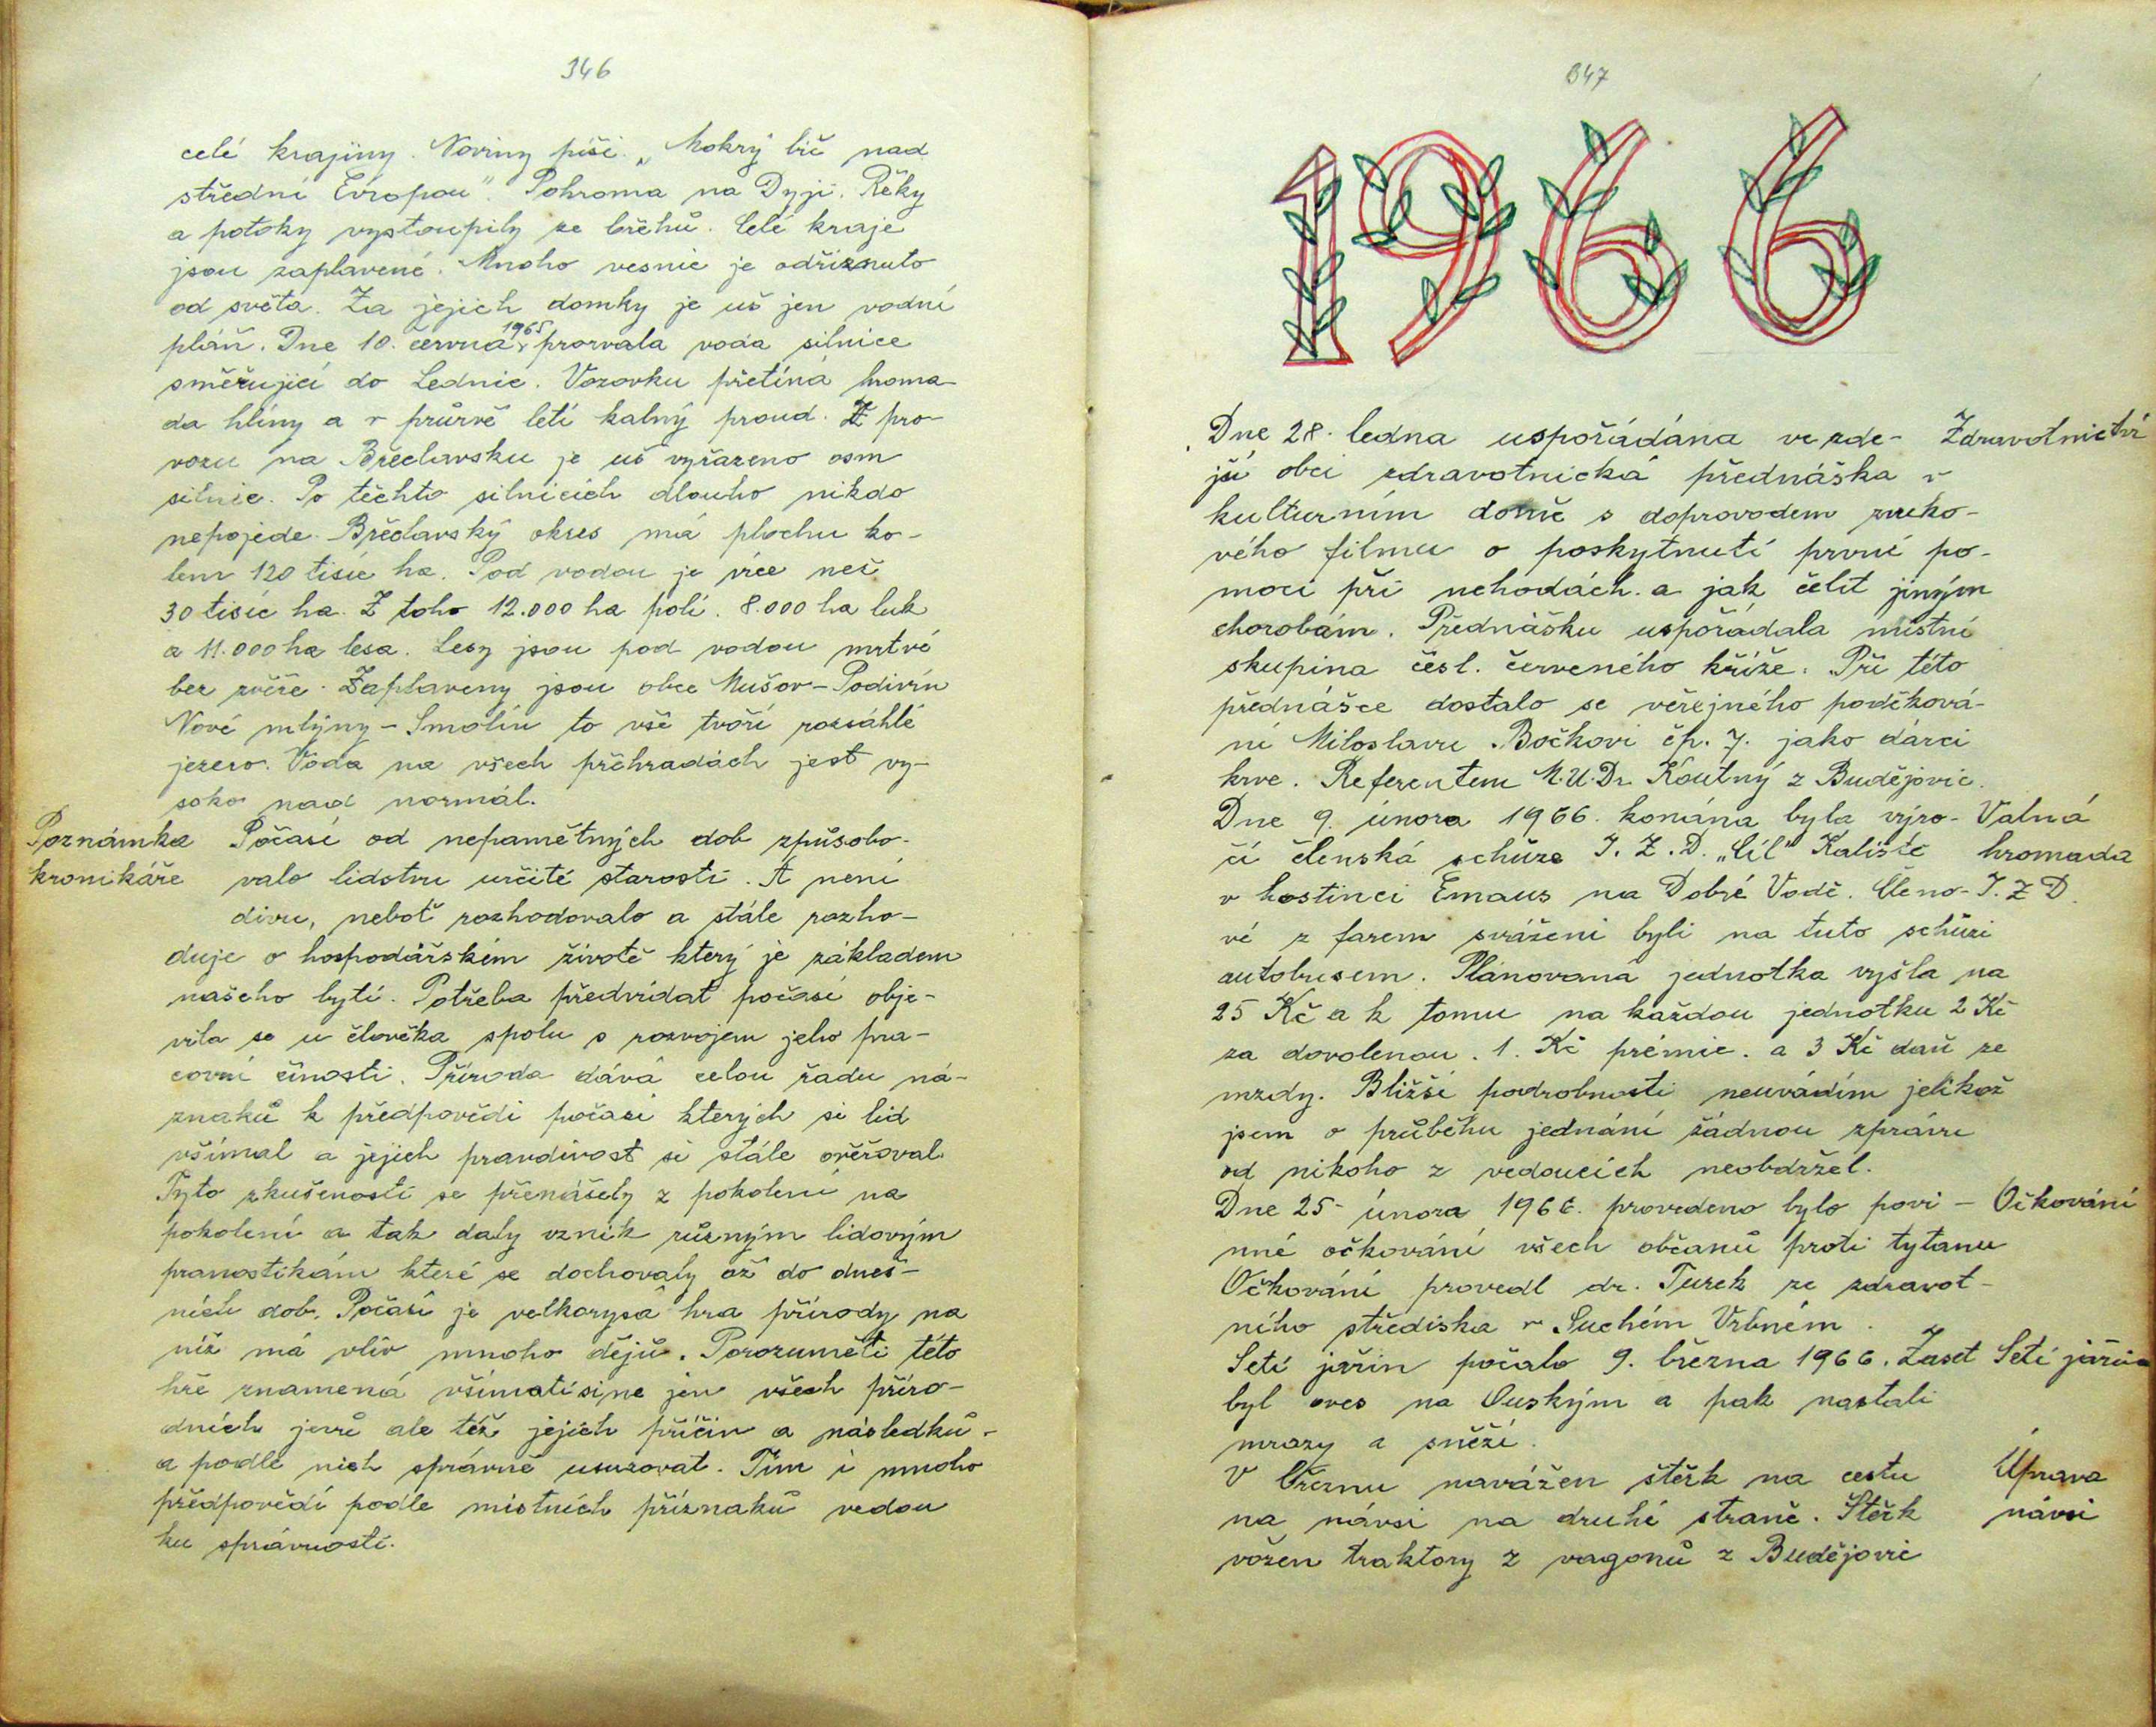 346
celé krajiny. Noviny píší. „Mokrý bič nad
střední Evropou". Pohroma na Dyji. Řeky
a potoky vystoupily ze břehů. Celé kraje
jsou zaplavené. Mnoho vesnic je odříznuto
od světa. Za jejich domky je už jen vodní
pláň. Dne 10. června 1965 prorvala voda silnice
směřující do Lednic. Vozovku přetíná hroma-
da hlíny a v průrvě letí kalný proud. Z pro-
vozu na Břeclavsku je už vyřazeno osm
silnic. Po těchto silnicích dlouho nikdo
nepojede. Břeclavský okres má plochu ko-
lem 120 tisíc ha. Pod vodou je více než
30 tisíc ha. Z toho 12.000 ha polí. 8.000 ha luk
a 11.000 ha lesa. Lesy jsou pod vodou mrtvé
bez zvěře. Zaplaveny jsou obce Mušov - Podivín
Nové mlýny - Smolín to vše tvoří rozsáhlé
jezero. Voda na všech přehradách jest vy-
soko nad normál.
Poznámka Počasí od nepamětných dob způsobo-
kronikáře valo lidstvu určité starosti. A není
divu, neboť rozhodovalo a stále rozho-
duje o hospodářském životě který je základem
našeho bytí. Potřeba předvídat počasí obje-
vila se u člověka spolu s rozvojem jeho pra-
covní činosti. Příroda dává celou řadu ná-
znaků k předpovědi počasí kterých si lid
všímal a jejich pravdivost si stále ověřoval.
Tyto zkušenosti se přenášely z pokolení na
pokolení a tak daly vznik různým lidovým
pranostikám které se dochovaly až do dneš-
ních dob. Počasí je velkorysá hra přírody na
níž má vliv mnoho dějů. Porozuměti této
hře znamená všímati si ne jen všech příro-
dních jevů ale též jejich příčin a následků.
a podle nich správně usuzovat. Tím i mnoho
předpovědí podle místních příznaků vedou
ku správnosti.
347
1966
Dne 28. ledna uspořádána ve zde- Zdravotnictví
jší obci zdravotnická přednáška v
kulturním domě s doprovodem zvuko-
vého filmu o poskytnutí první po-
moci při nehodách. a jak čelit jiným
chorobám. Přednášku uspořádala místní
skupina čěsl. červeného kříže. Při této
přednášce dostalo se veřejného poděková-
ní Miloslavu Bočkovi čp. 7. jako dárci
krve. Referentem M.U.Dr. Koutný z Budějovic.
Dne 9. února 1966. konána byla výro- Valná
čí členská schůze J. Z. D. „Cíl" Kaliště hromada
v hostinci Emaus na Dobré Vodě. Členo- J. Z D.
vé z farem sváženi byli na tuto schůzi
autobusem. Plánovaná jednotka vyšla na
25 Kč a k tomu na každou jednotku 2 Kč
za dovolenou. 1. Kč prémie. a 3 Kč daň ze
mzdy. Bližší podrobnosti neuvádím jelikož
jsem o průběhu jednání žádnou zprávu
od nikoho z vedoucích neobdržel.
Dne 25. února 1966. provedeno bylo povi- Očkování
nné očkování všech občanů proti tytanu
Očkování provedl dr. Turek ze zdravot-
ního střediska v Suchém Vrbném.
Setí jařin počalo 9. března 1966. Zaset Setí jařin
byl oves na Ouským a pak nastali
mrazy a sněží.
V březnu navážen štěrk na cestu Úprava
na návsi na druhé straně. Štěrk návsi
vožen traktory z vagonů z Budějovic